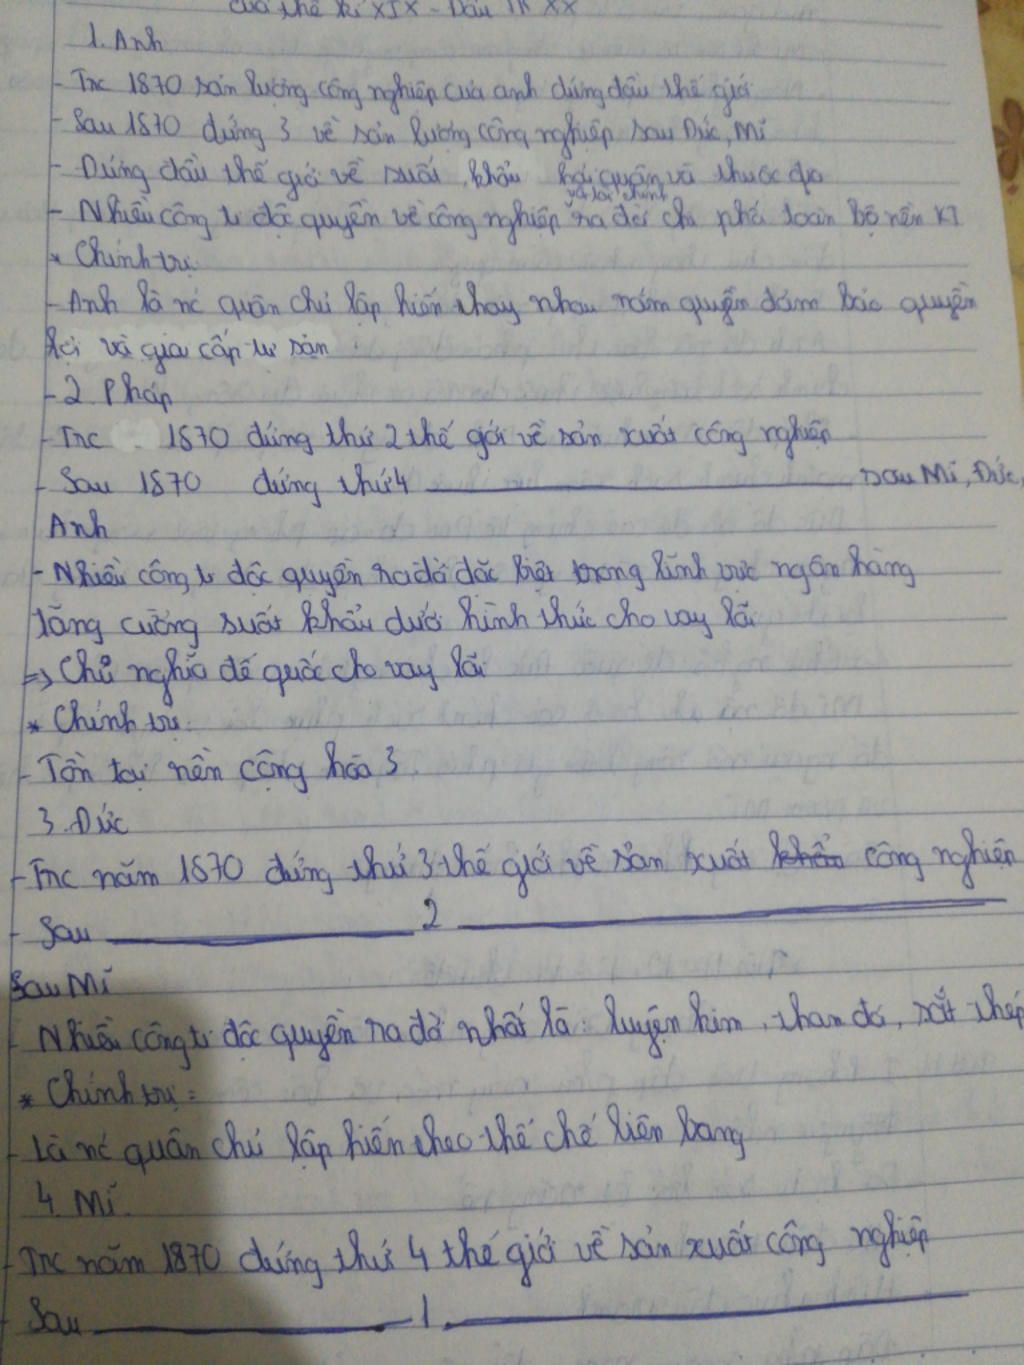 cuối thế kỉ XIX - Đầu TK XX
1. Anh
- Trc 1870 sản lượng công nghiệp của anh đứng đầu thế giới
- Sau 1870 đứng 3 về sản lượng công nghiệp sau Đức, Mĩ
- Đứng đầu thế giới về suất khẩu hải quân và thuộc địa
và tài chính
- Nhiều công ti độc quyền về công nghiệp ra đời chi phối toàn bộ nền KT
* Chính trị:
- Anh là nc quân chủ lập hiến thay nhau nắm quyền đảm bảo quyền
lợi và giai cấp tư sản
- 2. Pháp
- Trc 1870 đứng thứ 2 thế giới về sản xuất công nghiệp
- Sau 1870 đứng thứ 4 ——— sau Mĩ, Đức,
Anh
- Nhiều công ti độc quyền ra đời đặc biệt trong lĩnh vực ngân hàng
tăng cường suất khẩu dưới hình thức cho vay lãi
=> Chủ nghĩa đế quốc cho vay lãi
* Chính trị:
- Tồn tại nền cộng hòa 3
3. Đức
- Trc năm 1870 đứng thứ 3 thế giới về sản xuất khẩu công nghiệp
- Sau ——— 2 ———
Sau Mĩ
- Nhiều công ti độc quyền ra đời nhất là: luyện kim, than đá, sắt thép
* Chính trị:
- Là nc quân chủ lập hiến theo thể chế liên bang
4. Mĩ.
- Trc năm 1870 đứng thứ 4 thế giới về sản xuất công nghiệp
- Sau ——— 1 ———